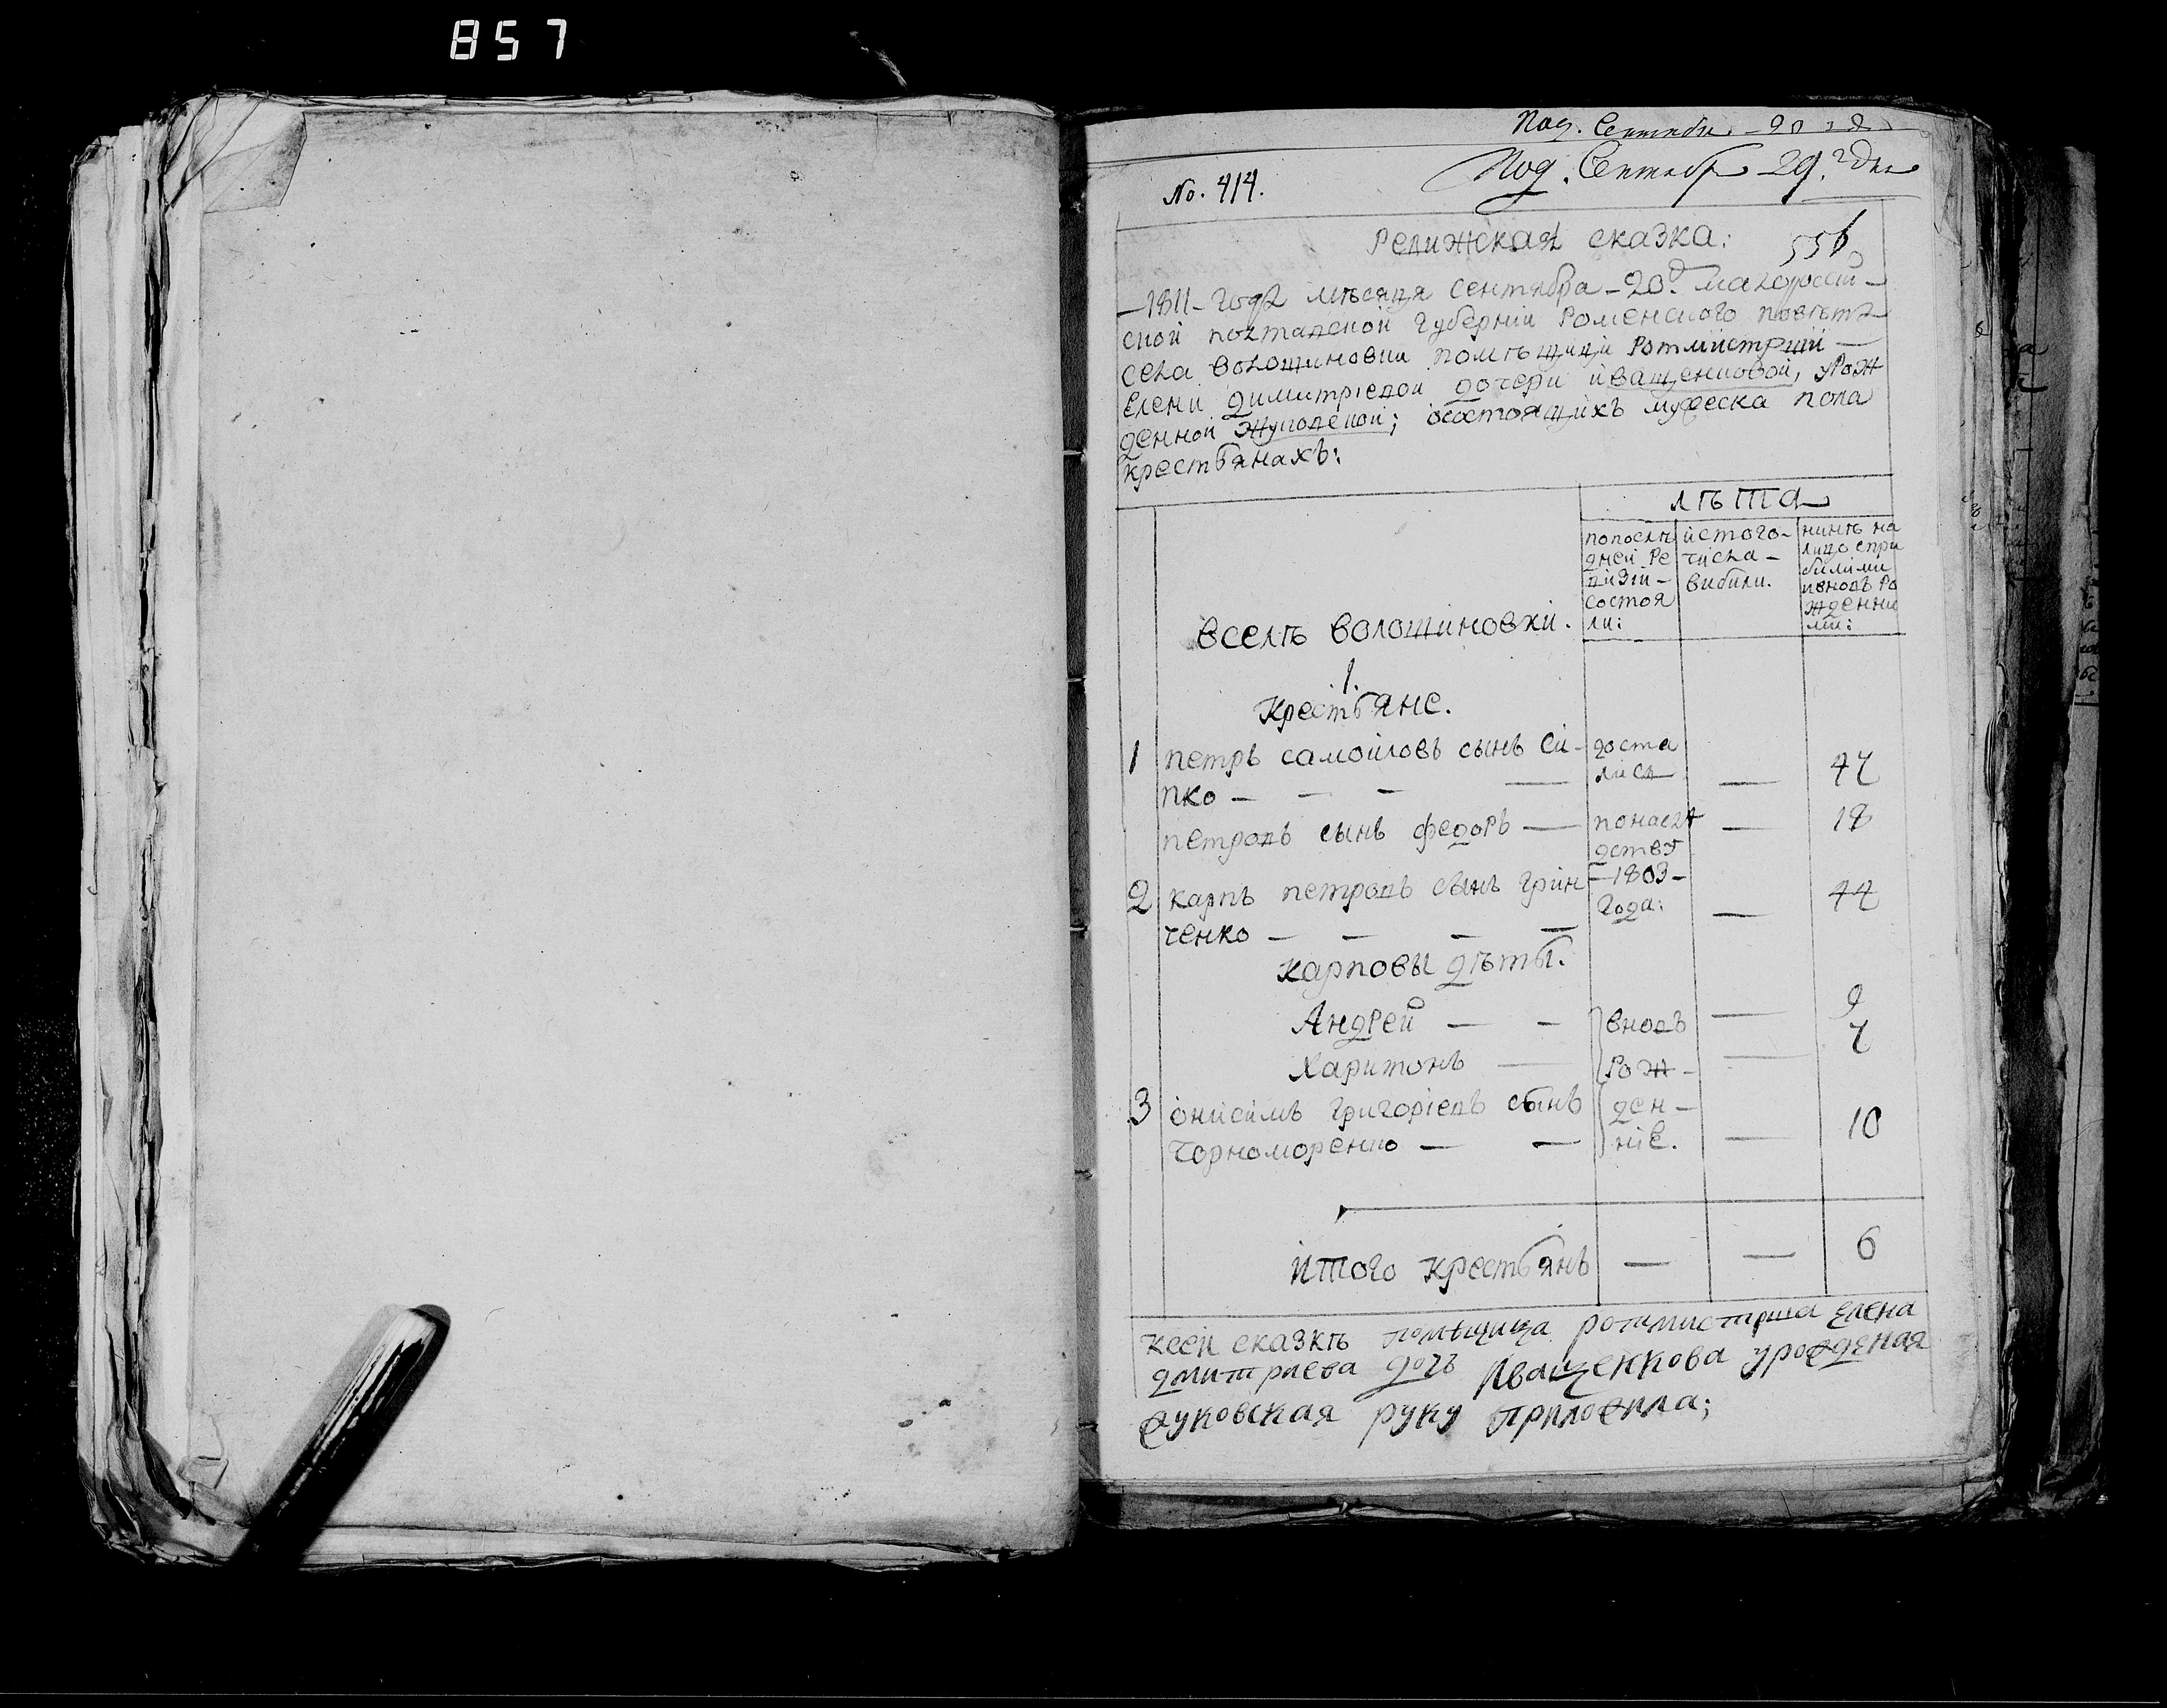 857
Под. Сентября
No. 414.
Под. Сентябр 29.го дня
Ревижская сказка:
556
-1811- года мѣсяця сентября -20.д малороссій-
ской полтавской губерніи Роменского повѣта
села волошиновки помѣщици Ротмистрши —
Елени димитріевой дочери иващенковой, Рож
денной Жуковской; осостоящихъ мужеска пола
крестьянахъ:
лѣта
попослѣ
дней Ре
визіи-
состоя
ли:
истого-
числа-
вибили.
нинѣ на
лицо спри
билими
ивновь Ро
жденни
ми:
вселѣ волошиновки.
1.
Крестьяне.
1 петръ самойловъ сынъ си-
пко — — — —
достали
лись — 47
петровъ сынъ федоръ — понаслѣ — 18
дству
2 карпъ петровъ сынъ грин -1803-
ченко — — — — года: — 44
карповы дѣти.
Андрей — — вновь — 9
Харитонъ — Рож- — 7
3 онисимъ григоріевъ сынъ ден-
Чорноморенко — — ніе. — 10
итого крестьянъ — — 6
ксей сказкѣ помѣщица ротмистрша елена
дмитриева дочь Иващенкова урожденая
жуковская руку приложила;